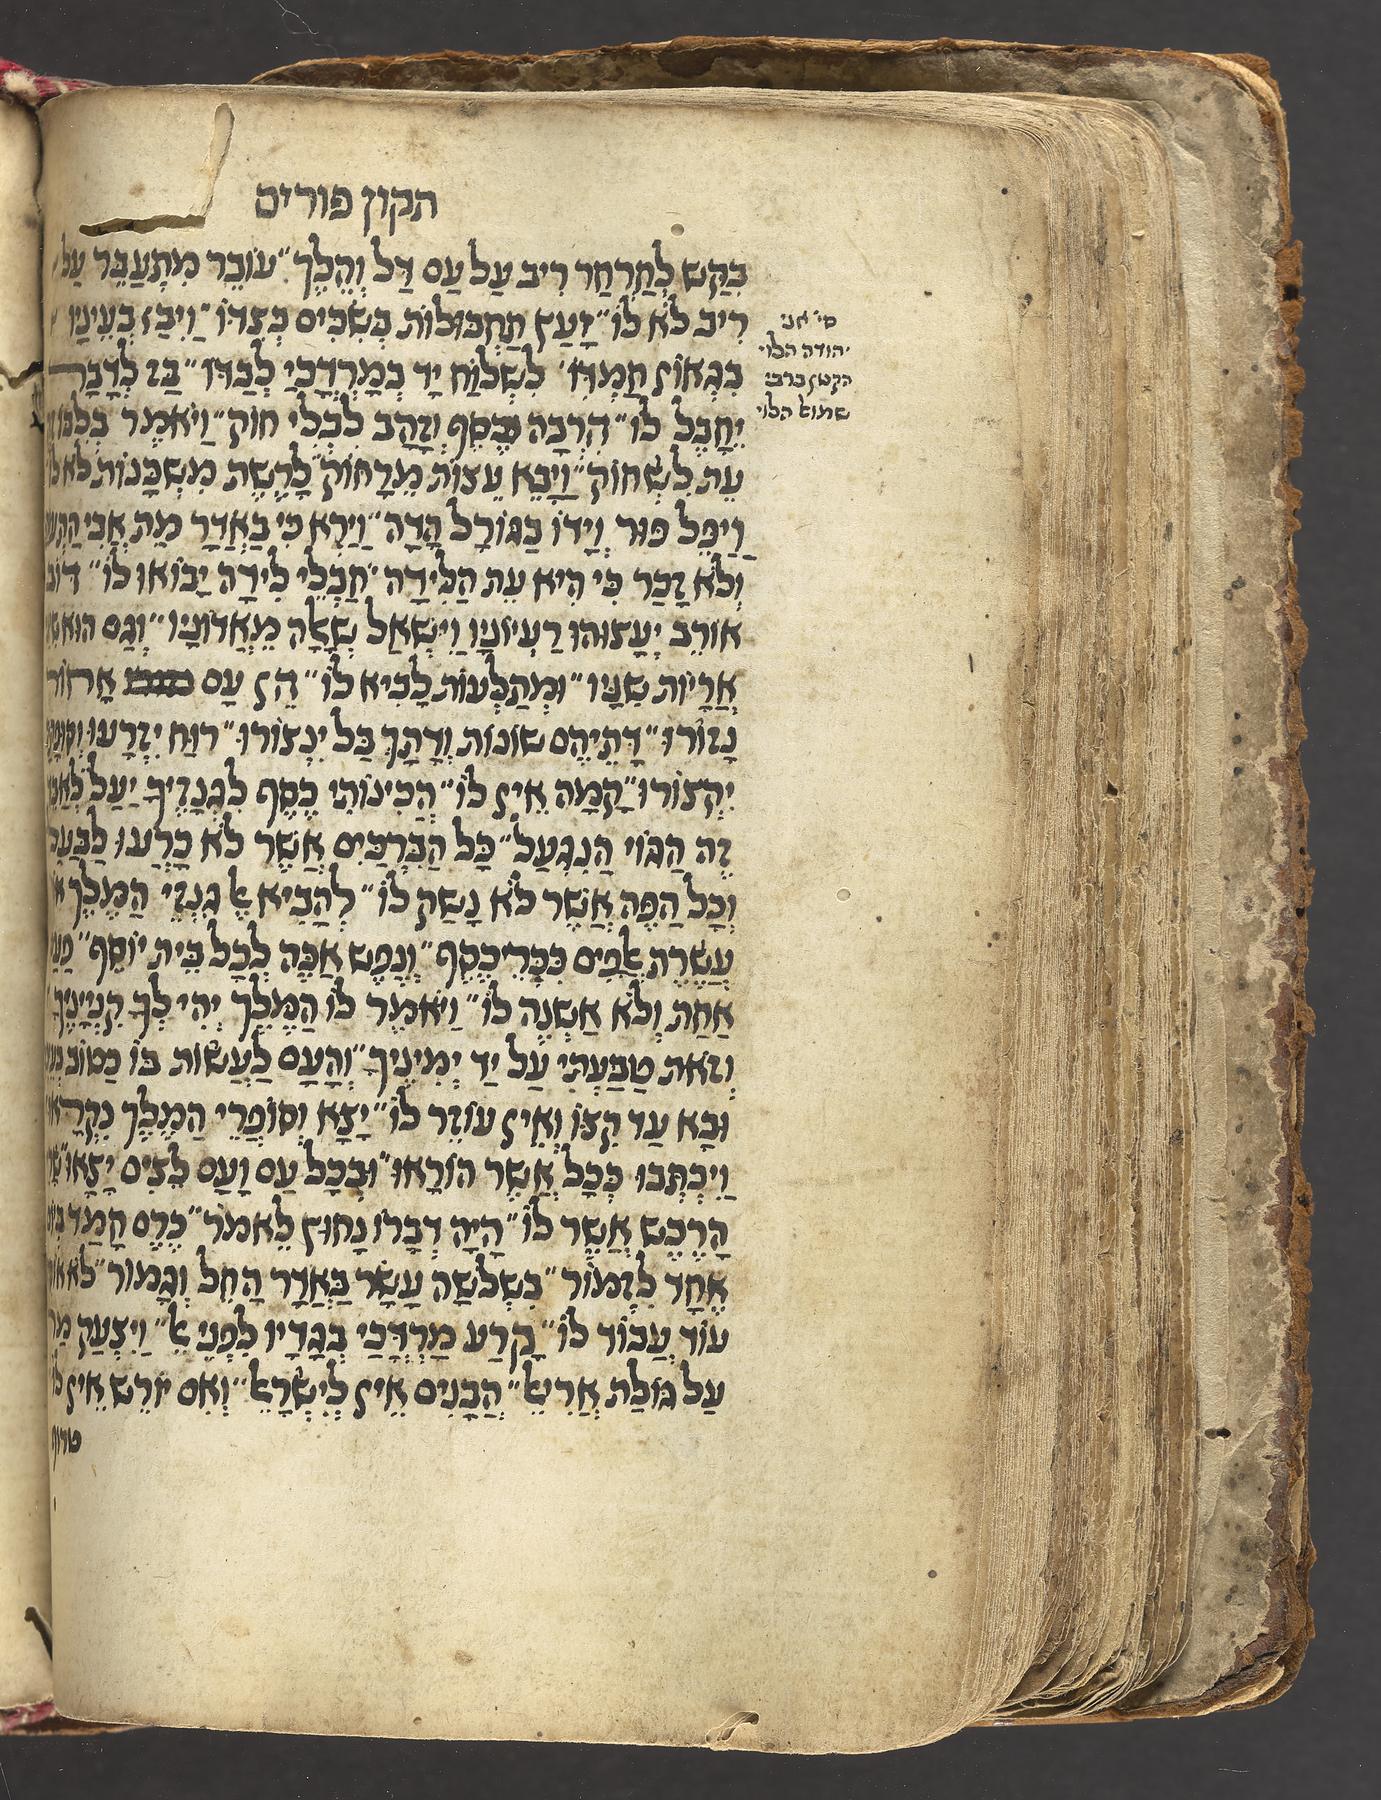 תקון פורים
בִּקֵּשׁ לְחַרְחַר רִיב עַל עַם דַּל וְהֵלֶךְ״ עוֹבֵר מִתְעַבֵּר עַל
רִיב לֹא לוֹ״ יָעַץ תַּחְבּוּלוֹת בְּשִׂכִּים בְּצִדּוֹ״ וַיִּבֶז בְּעֵינָיו
בִּגְאוֹן חֲמָדוֹ׳ לִשְׁלוֹחַ יָד בְּמָרְדֳּכַי לְבַדּוֹ״ בַּז לְדָבָר
יֵחָבֶל לוֹ״ הִרְבָּה כֶסֶף וְזָהָב לִבְלִי חוֹק״ וַיֹּאמֶר בְּלִבּוֹ
עֵת לִשְׂחוֹק״ וַיָּבֵא עֵצוֹת מֵרָחוֹק״ לָרֶשֶׁת מִשְׁכָּנוֹת לֹא לוֹ
וַיַּפֵּל פּוּר וְיָדוֹ בַּגּוֹרָל הָדָה״ וַיַּרְא כִּי בַאֲדָר מֵת אֲבִי
וְלֹא זָכַר כִּי הִיא עֵת הַלֵּידָה״ חֶבְלֵי לֵידָה יָבוֹאוּ לוֹ״ דּוֹב
אוֹרֵב יְעָצוּהוּ רַעְיוֹנָיו וַיִּשְׁאַל שְׁאֵלָה מֵאֲדוֹנָיו״ וְגַם הוּא
אֲרָיוֹת שִׁנָּיו״ וּמְתַלְּעוֹת לָבִיא לוֹ״ הֵן עַם אָחוֹר
נָזוֹרוּ״ דָּתֵיהֶם שׁוֹנוֹת וְדָתָךְ בַּל יִנְצוֹרוּ״ רוּחַ יִזְרָעוּ
יִקְצוֹרוּ״ קָמָה אֵין לוֹ״ הֲכִינוֹתִי כֶּסֶף לִגְנָזֶיךָ יַעַל
זֶה הַגּוֹי הַנִּגְעַל״ כָּל הַבִּרְכַּיִם אֲשֶׁר לֹא כָרְעוּ לַבַּעַל
וְכָל הַפֶּה אֲשֶׁר לֹא נָשַׁק לוֹ״ לְהָבִיא אֶל גִּנְזֵי הַמֶּלֶךְ
עֲשֶׂרֶת אֲלָפִים כִּכְּרֵי כֶסֶף״ וְנֶפֶשׁ אַכֶּה לְכָל בֵּית יוֹסֵף״ פַּעַם
אַחַת וְלֹא אֶשְׁנֶה לוֹ״ וַיֹּאמֶר לוֹ הַמֶּלֶךְ יְהִי לְךָ קִנְיָינֶיךָ
וְזֹאת טַבַּעְתִּי עַל יַד יְמִינֶיךָ״ וְהָעָם לַעֲשׂוֹת בּוֹ כַּטּוֹב
וּבָא עַד קִצּוֹ וְאֵין עוֹזֵר לוֹ״ יָצָא וְסוֹפְרֵי הַמֶּלֶךְ
וַיִּכְתְּבוּ כְּכָל אֲשֶׁר הוֹרָאוּ״ וּבְכָל עַם וָעַם לֵצִים יָצָאוּ״
הָרֶכֶשׁ אֲשֶׁר לוֹ״ הָיָה דְּבָרוֹ נָחוּץ לֵאמֹר״ כֶּרֶם קָמַד
אֶחָד לִזְמוֹר״ בִּשְׁלֹשָׁה עָשָׂר בַּאֲדָר הָחֵל וְגָמוֹר״ לֹא
עוֹד עֲבוֹר לוֹ״ קָרַע מָרְדֳּכַי בְּגָדָיו לִפְנֵי אֵל״ וַיִּצְעַק
עַל גּוֹלַת אֲרִיאֵל״ הֲבָנִים אֵין לְיִשְׂרָאֵל״ וְאִם יוֹרֵשׁ אֵין לוֹ
סי׳ אני
יהודה הלוי
הקטן ברבי
שמואל הלוי